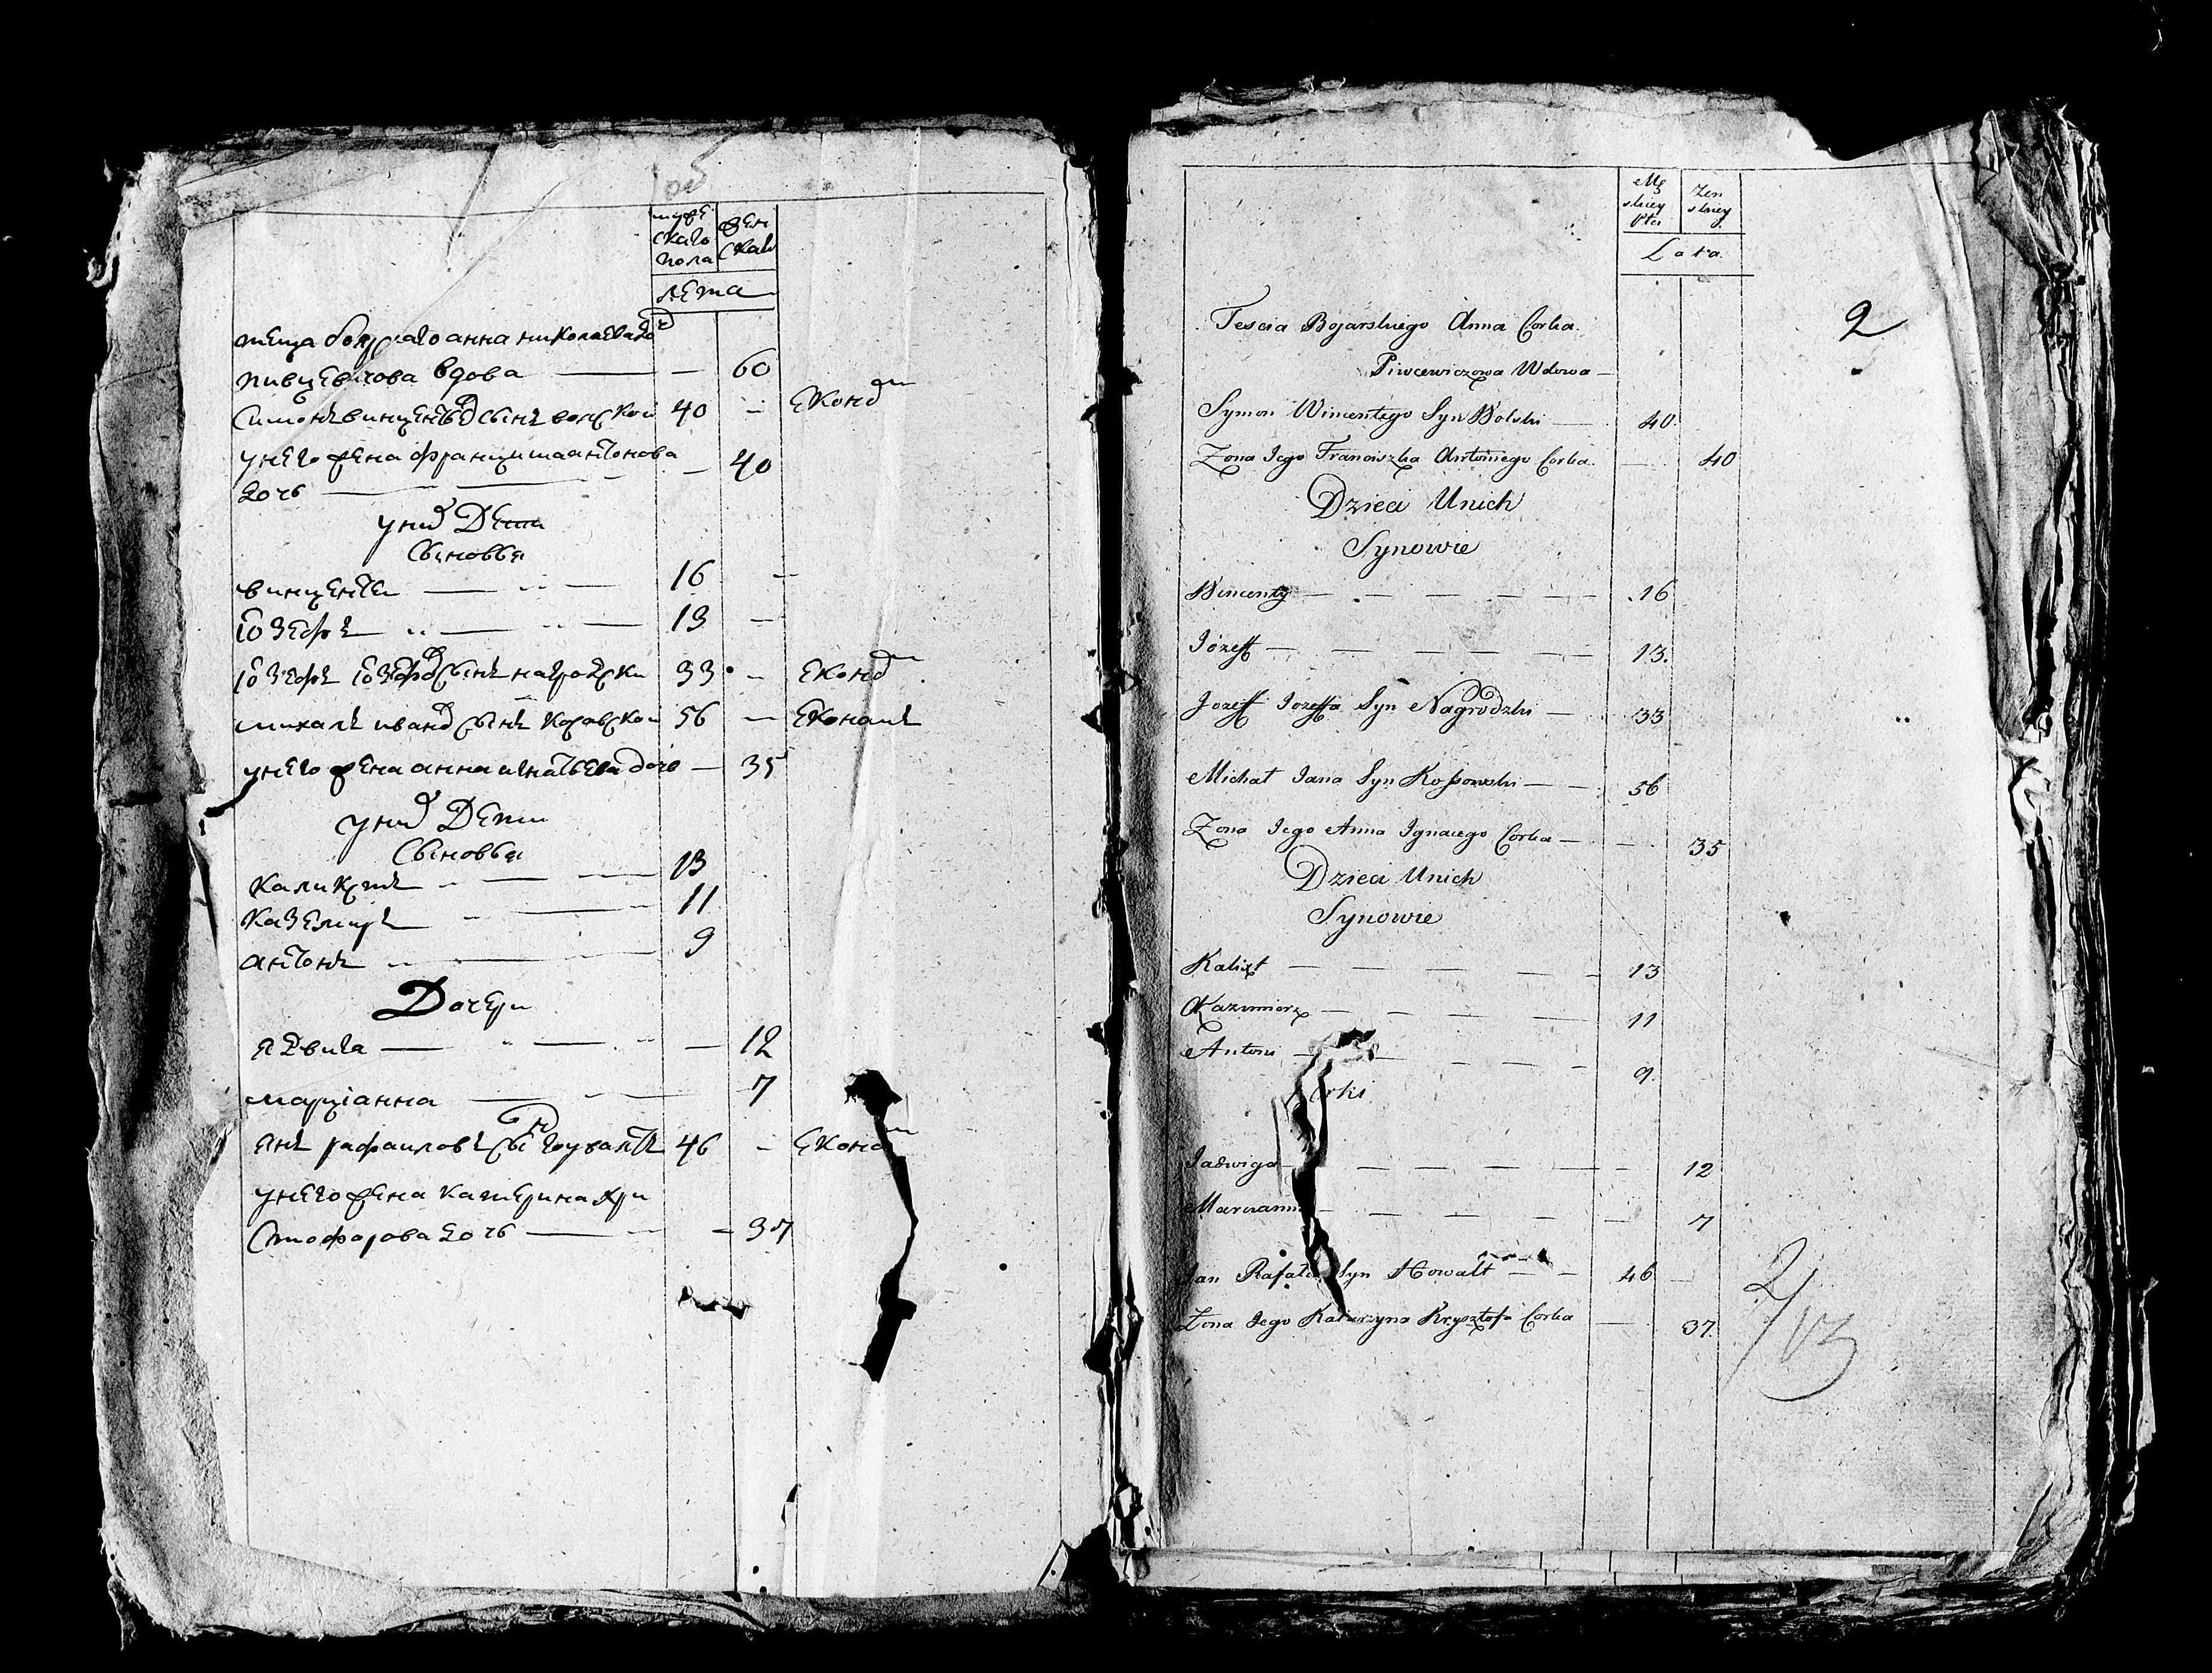 1об
муже
скаго
пола
жен
скаго
лета
теща боярскаго анна николаева доч
пивцевичова вдова — — 60
Симонъ винцентьев сынъ вольской 40 — Економ
унего жена францишка антонова — 40
дочь
уних Дети
Сыновья
винцентей — 16 —
іозефъ — 13 —
іозефъ іозефов сынъ нагродски 33 — Економ
михалъ иванов сынъ косовской 56 — Економъ
унего жена анна игнатьева дочь — 35
уних Дети
Сыновья
каликстъ — 13
каземиръ — 11
антонъ — 9
Дочери
ядвига — — 12
марціанна — 7
янъ рафаиловъ сын гоувалтъ 46 — Економ
унего жена катерина хри
стофорова дочь — — 37
Mę
skiey
Płci
Zen
skiey
Lata
2
Tescia Bojarskiego Anna Corka
Piwcewiczowa Wdowa —
Symon Wincentego Syn Wolski — 40.
Zona Jego Franciszka Antoniego Corka. — 40
Dzieci Unich
Synowie
Wincenty — — — — — — 16
Józeff — — — — — 13.
Jozeff Jozeffa Syn Nagrodzki — 33
Michał Jana Syn Kossowski — — 56
Zona Jego Anna Ignacego Corka — — 35
Dzieci Unich
Synowie
Kalixt — — — — — 13
Kazimierz — — — — 11
Antoni — — — — — 9.
Corki
Jadwiga — — — — — — 12
Marcianna — — — — — — 7
Jan Rafała Syn Howalt — — 46 —
Zona Jego Katarzyna Krysztofa Corka — 37.
2/13